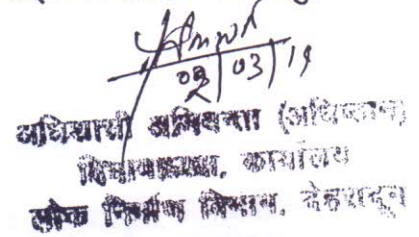 02/03/19
अधिशासी अभियन्ता (अधिष्ठान)
कार्यालय
लोक निर्माण विभाग, देहरादून